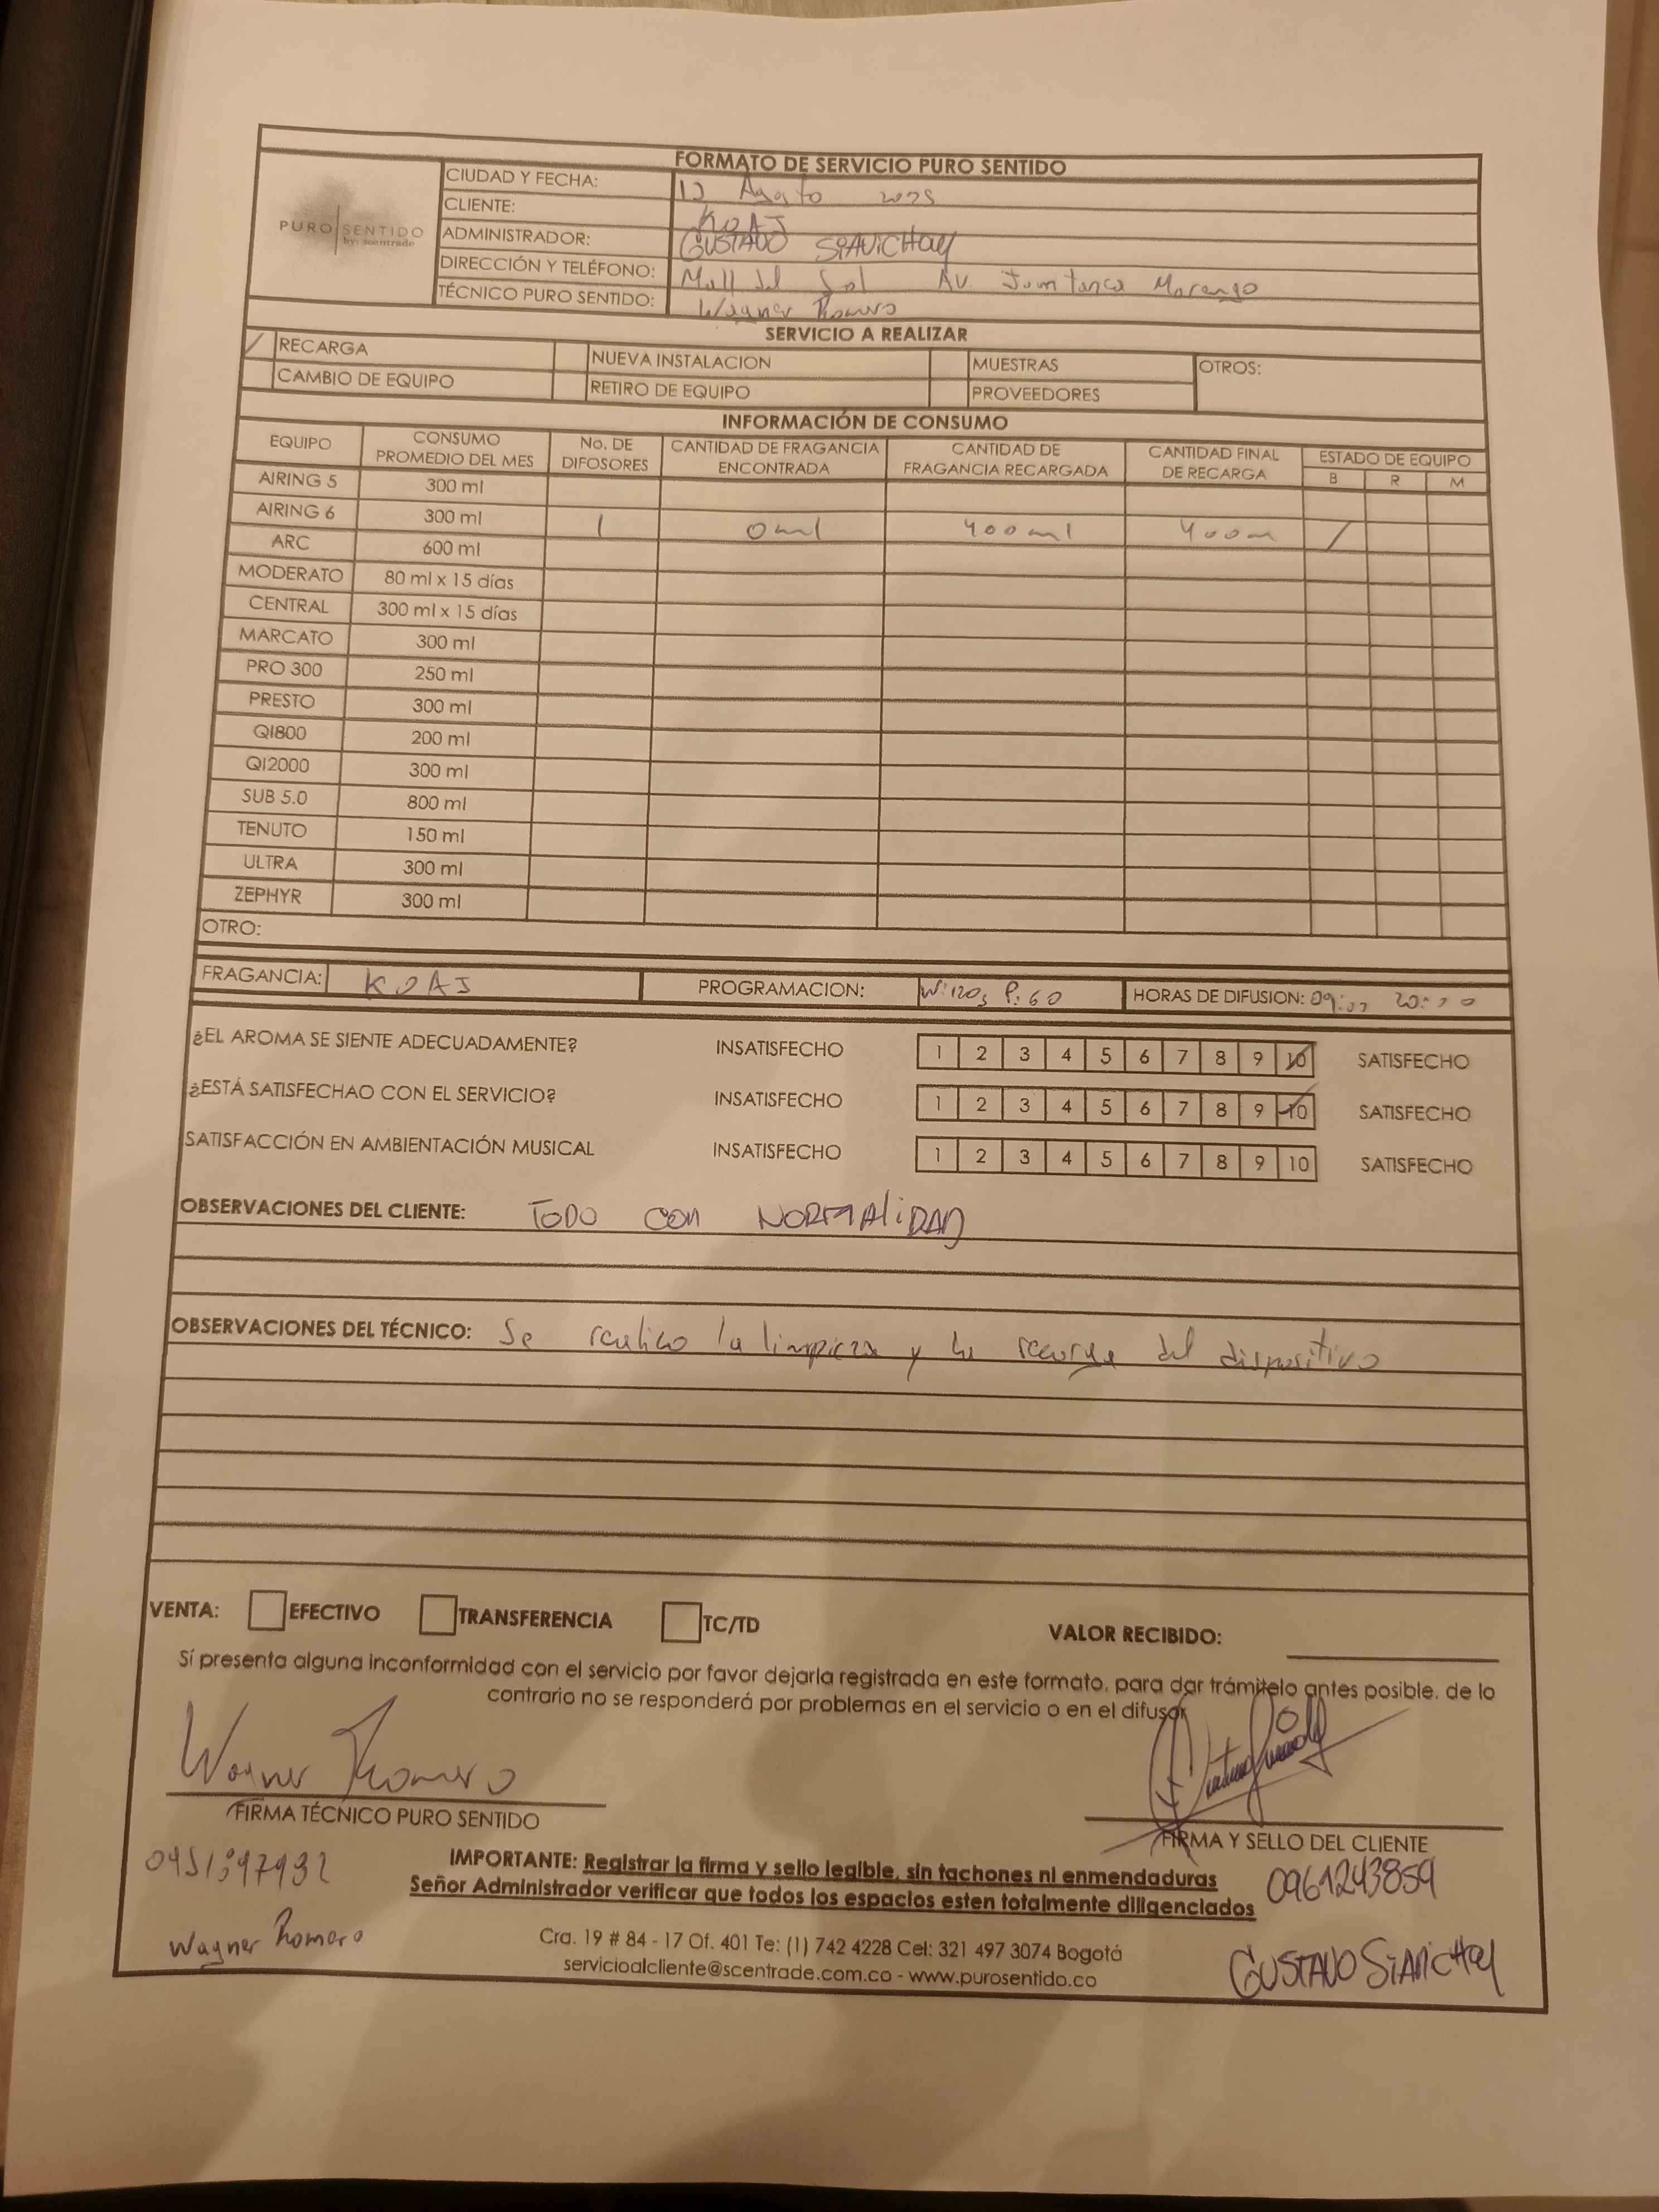 FORMATO DE SERVICIO PURO SENTIDO
PURO SENTIDO
by: scentrade
CIUDAD Y FECHA: 12 Agosto 2025
CLIENTE: KOAJ
ADMINISTRADOR: GUSTAVO SIAVICHAY
DIRECCIÓN Y TELÉFONO: Mall del Sol Av. Juan Tanca Marengo
TÉCNICO PURO SENTIDO: Wagner Romero
SERVICIO A REALIZAR
/ RECARGA NUEVA INSTALACION MUESTRAS OTROS:
CAMBIO DE EQUIPO RETIRO DE EQUIPO PROVEEDORES
INFORMACIÓN DE CONSUMO
EQUIPO CONSUMO PROMEDIO DEL MES No. DE DIFOSORES CANTIDAD DE FRAGANCIA ENCONTRADA CANTIDAD DE FRAGANCIA RECARGADA CANTIDAD FINAL DE RECARGA ESTADO DE EQUIPO
B R M
AIRING 5 300 ml
AIRING 6 300 ml 1 0 ml 400 ml 400m /
ARC 600 ml
MODERATO 80 ml x 15 días
CENTRAL 300 ml x 15 días
MARCATO 300 ml
PRO 300 250 ml
PRESTO 300 ml
QI800 200 ml
QI2000 300 ml
SUB 5.0 800 ml
TENUTO 150 ml
ULTRA 300 ml
ZEPHYR 300 ml
OTRO:
FRAGANCIA: KOAJ PROGRAMACION: W:120, P:60 HORAS DE DIFUSION: 09:00 20:00
¿EL AROMA SE SIENTE ADECUADAMENTE? INSATISFECHO 1 2 3 4 5 6 7 8 9 10 SATISFECHO
¿ESTÁ SATISFECHAO CON EL SERVICIO? INSATISFECHO 1 2 3 4 5 6 7 8 9 10 SATISFECHO
SATISFACCIÓN EN AMBIENTACIÓN MUSICAL INSATISFECHO 1 2 3 4 5 6 7 8 9 10 SATISFECHO
OBSERVACIONES DEL CLIENTE: TODO CON NORMALIDAD
OBSERVACIONES DEL TÉCNICO: Se realizo la limpieza y la recarga del dispositivo
VENTA: EFECTIVO TRANSFERENCIA TC/TD VALOR RECIBIDO:
Sí presenta alguna inconformidad con el servicio por favor dejarla registrada en este formato, para dar trámitelo antes posible, de lo
contrario no se responderá por problemas en el servicio o en el difusor
Wagner Romero
FIRMA TÉCNICO PURO SENTIDO FIRMA Y SELLO DEL CLIENTE
IMPORTANTE: Registrar la firma y sello legible, sin tachones ni enmendaduras
Señor Administrador verificar que todos los espacios esten totalmente diligenciados
0961243859
Wagner Romero
Cra. 19 # 84 - 17 Of. 401 Te: (1) 742 4228 Cel: 321 497 3074 Bogotá
servicioalcliente@scentrade.com.co - www.purosentido.co
GUSTAVO SIAVICHAY